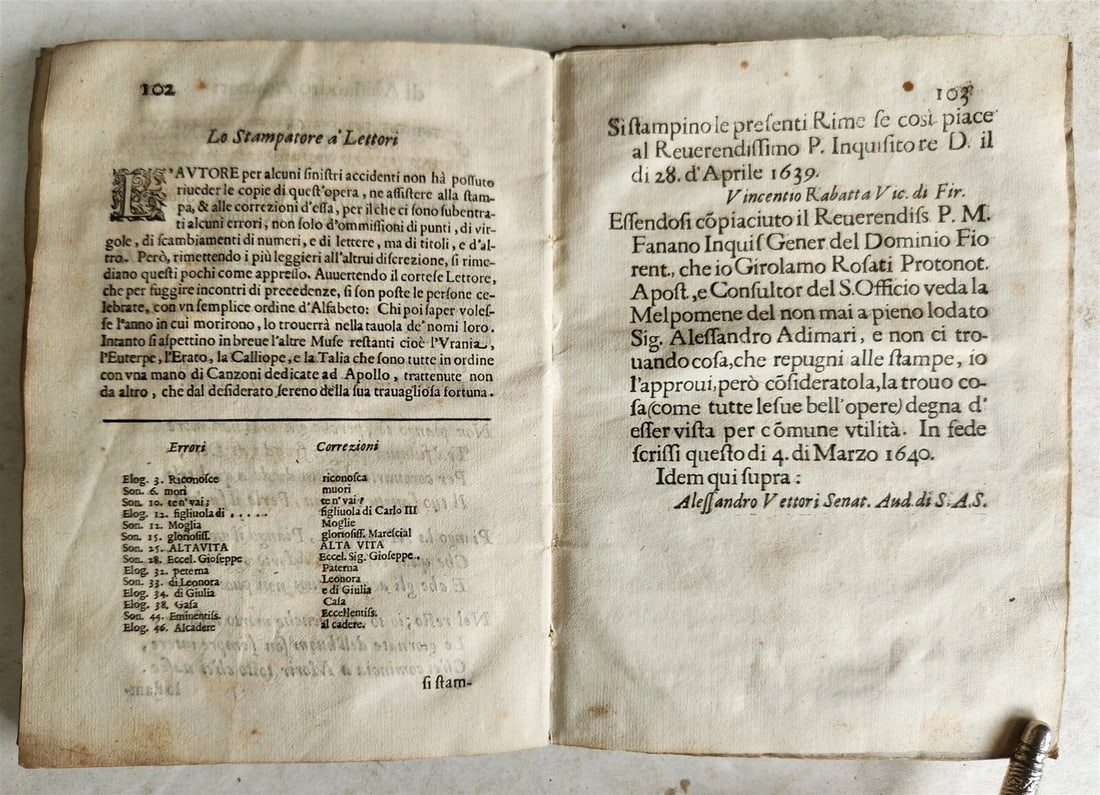 102
Lo Stampatore a' Lettori
L'AVTORE per alcuni sinistri accidenti non hà possuto
riueder le copie di quest'opera, ne assistere alla stam-
pa, & alle correzioni d'essa, per il che ci sono subentra-
ti alcuni errori, non solo d'ommissioni di punti, di vir-
gole, di scambiamenti di numeri, e di lettere, ma di titoli, e d'al-
tro. Però, rimettendo i più leggieri all'altrui discrezione, si rime-
diano questi pochi come appresso. Auuertendo il cortese Lettore,
che per fuggire incontri di precedenze, si son poste le persone ce-
lebrate, con vn semplice ordine d'Alfabeto: Chi poi saper voles-
se l'anno in cui morirono, lo trouerrà nella tauola de' nomi loro.
Intanto si aspettino in breue l'altre Muse restanti cioè l'Vrania,
l'Euterpe, l'Erato, la Calliope, e la Talia che sono tutte in ordine
con vna mano di Canzoni dedicate ad Apollo, trattenute non
da altro, che dal desiderato sereno della sua trauagliosa fortuna.
Errori Correzioni
Elog. 3. Riconosce riconosca
Son. 6. mori muori
Son. 10. te n' vai; te n' vai?
Elog. 12. figliuola di . . . . . figliuola di Carlo III
Son. 12. Moglia Moglie
Son. 15. gloriosiss. gloriosiss. Marescial
Son. 25. ALTAVITA ALTA VITA
Son. 28. Eccel. Gioseppe Eccel. Sig. Gioseppe.
Elog. 32. peterna Paterna
Son. 33. di Leonora Leonora
Elog. 34. di Giulia e di Giulia
Elog. 38. Gasa Casa
Son. 44. Eminentiss. Eccellentiss.
Elog. 46. Alcadere al cadere.
si stam-
103
Si stampino le presenti Rime se così piace
al Reuerendissimo P. Inquisitore D. il
di 28. d'Aprile 1639.
Vincentio Rabatta Vic. di Fir.
Essendosi cõpiaciuto il Reuerendiss. P. M.
Fanano Inquis Gener del Dominio Fio
rent., che io Girolamo Rosati Protonot.
Apost., e Consultor del S. Officio veda la
Melpomene del non mai a pieno lodato
Sig. Alessandro Adimari, e non ci tro-
uando cosa, che repugni alle stampe, io
l'approui, però cõsideratola, la trouo co-
sa (come tutte le sue bell'opere) degna d'
esser vista per cõmune vtilità. In fede
scrissi questo di 4. di Marzo 1640.
Idem qui supra:
Alessandro Vettori Senat. Aud. di S. A. S.